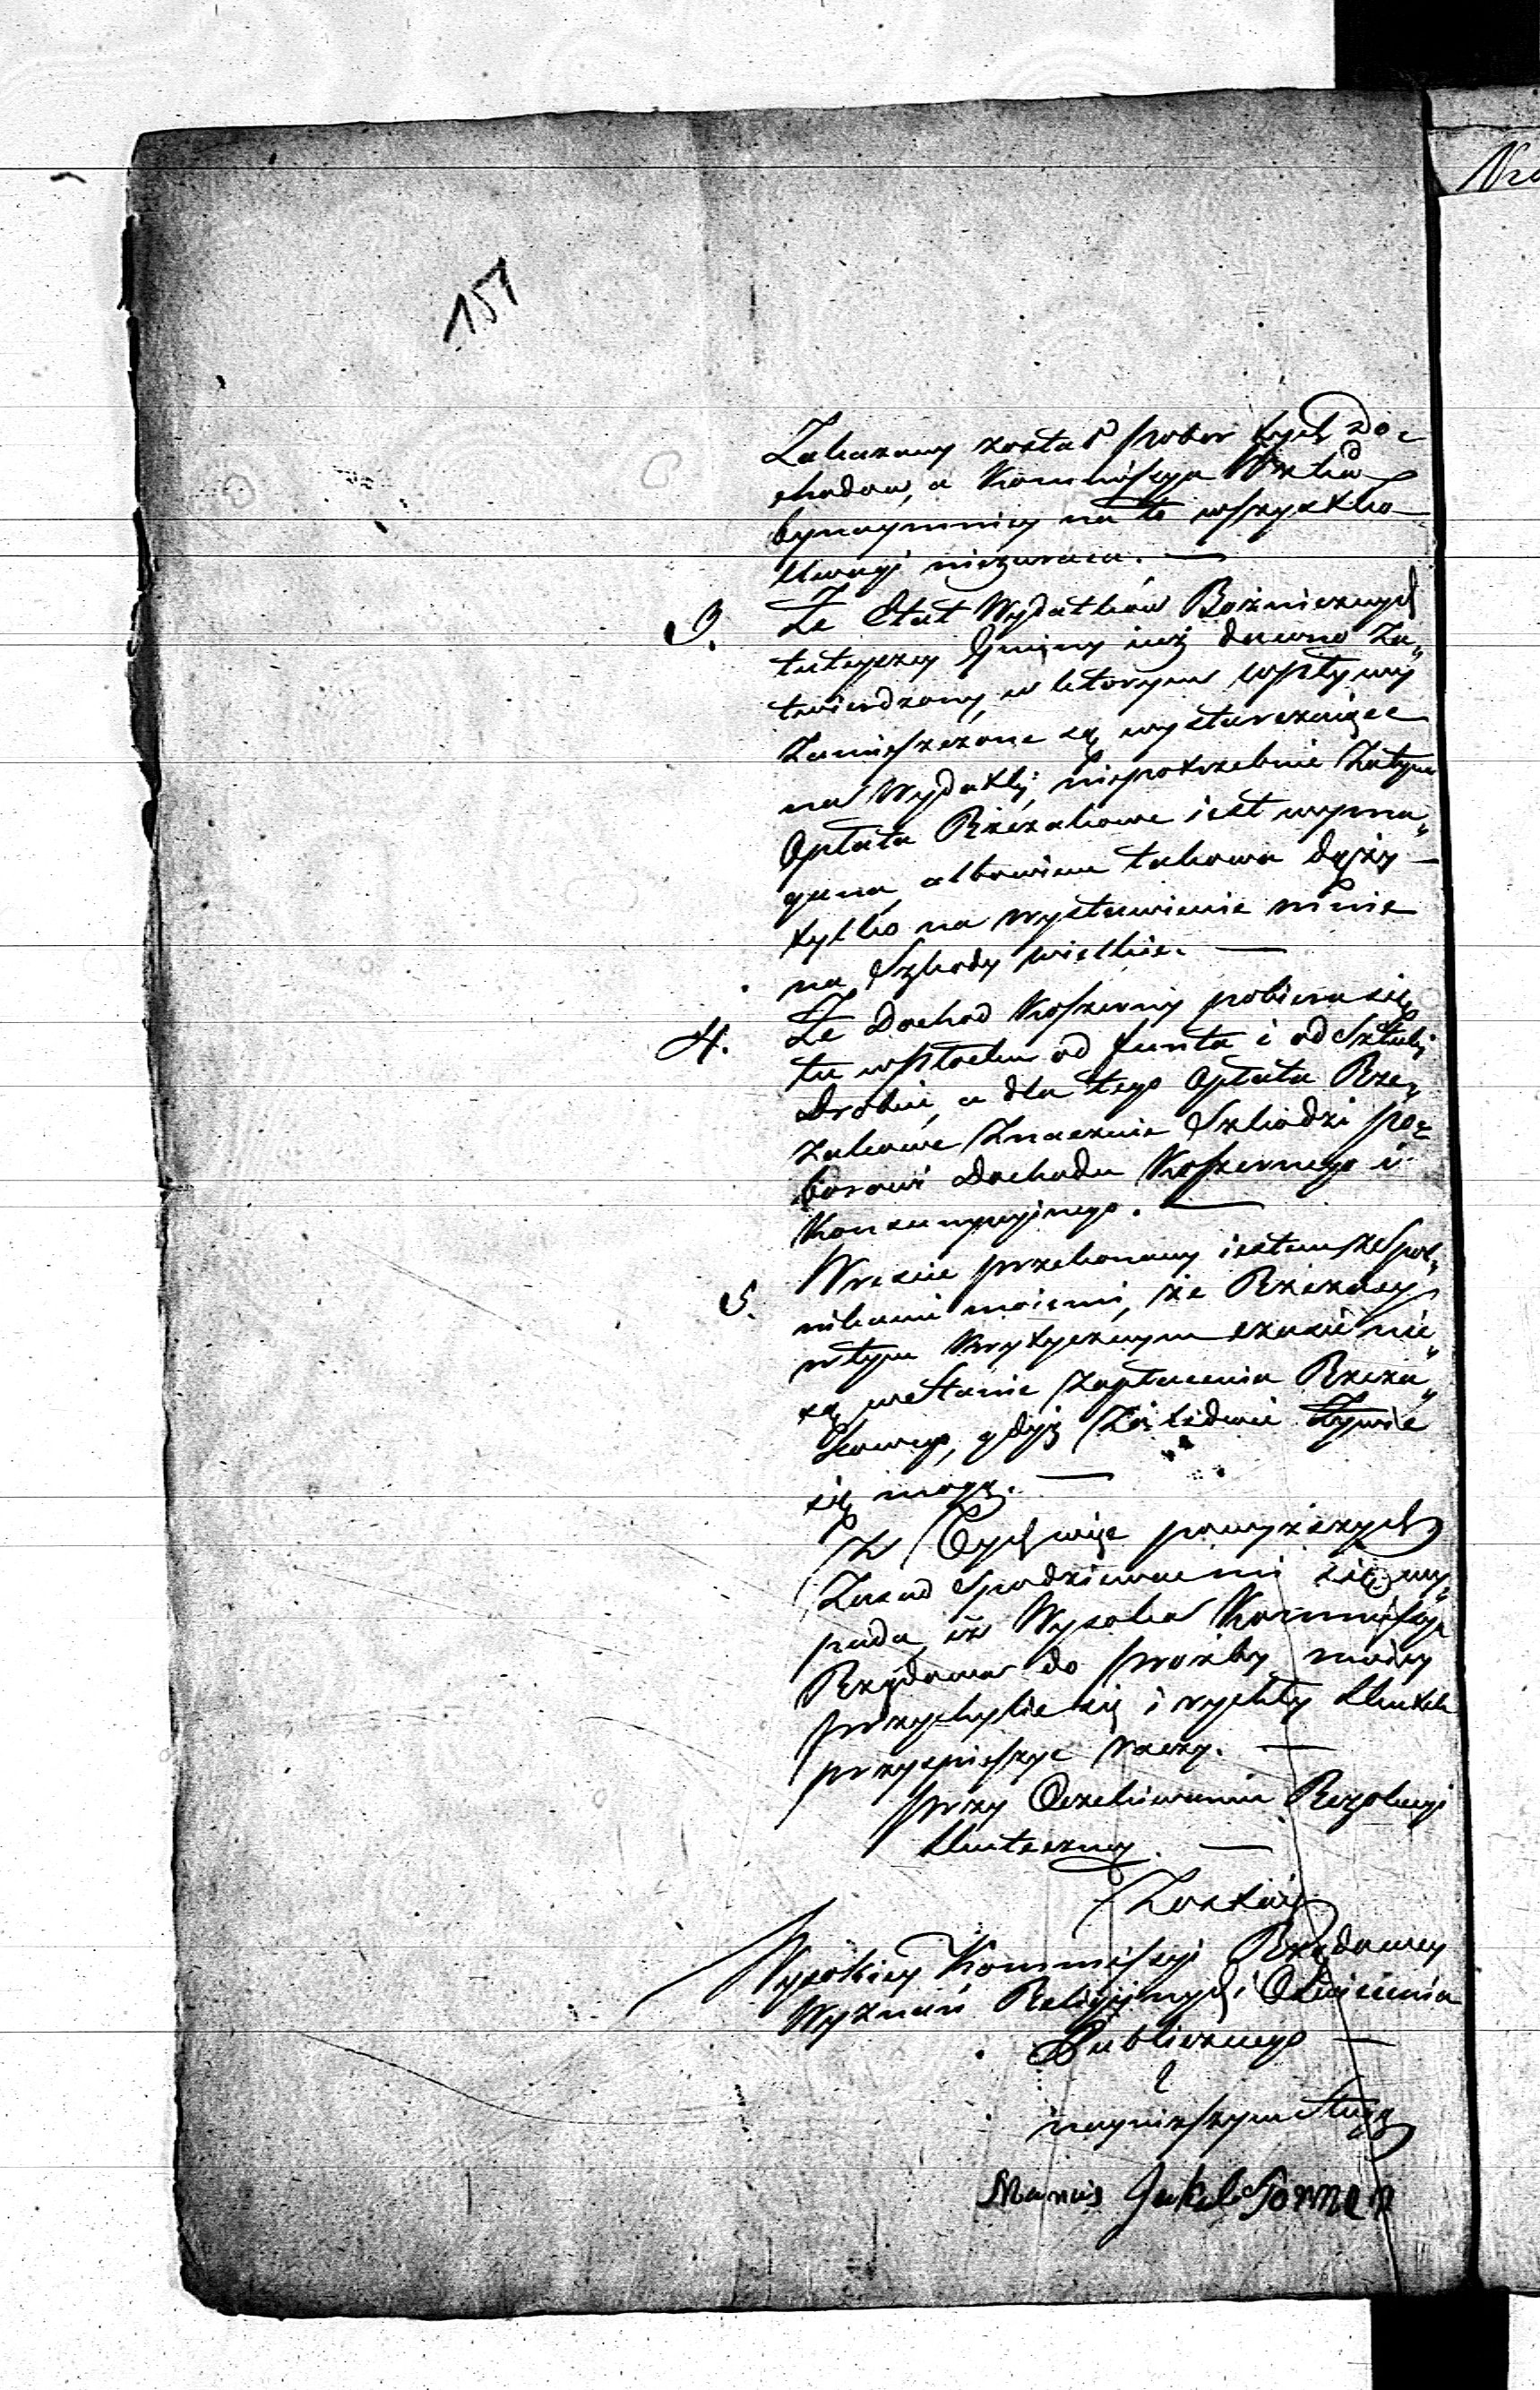 157
Zakazany został pobor tych do-
chodów, a Kommissya Wtka
bynaymniey na to wszystko
Uwagi niezwraca. —
3. Że Etat Wydatków Bożniczych
tuteyszey Gminy iuż dawno Za„
twierdzony, w którym wpływy
Zamieszczone są wystarczaiące
na Wydatki, niepotrzebnie Zatym
Opłata Rzezakowe iest wyma„
gana, albowiem takowa dąży —
tylko na wystawienie mnie
na Szkody wielkie. —
4. Że Dochod Koszerny pobiera się
tu wpłacku od funta i od Sztuki
Drobiu, a dla tego Opłata Rze„
zakowe Znacznie Szkodzi po„
borowi Dochodu Koszernego i
Konsumpcyjnego. —
5. Wreście przekonany iestem ze Spol„
nikami moiemi, że Rzezacy
w tym krytycznym czasie nie„
są w stanie zapłacenia Rzeza„
kowego, gdyż Zaledwie żywić
się mogą. —
Z Tych więc powyższych
Zasad Spodziewać mi się wy„
pada, iż Wysoka Kommissya
Rządowa do proźby moiey
przychylić się i rychły Skutek
przyspieszyć raczy. —
przy Oczekiwaniu Rezolucyi
Skuteczney. —
Zostaię
Wysokiey Kommissyi Rządowey
Wyznań Religijnych i Oświecenia
Publicznego —
naynizszym Sługą
Manas Jakel Torner
Nro